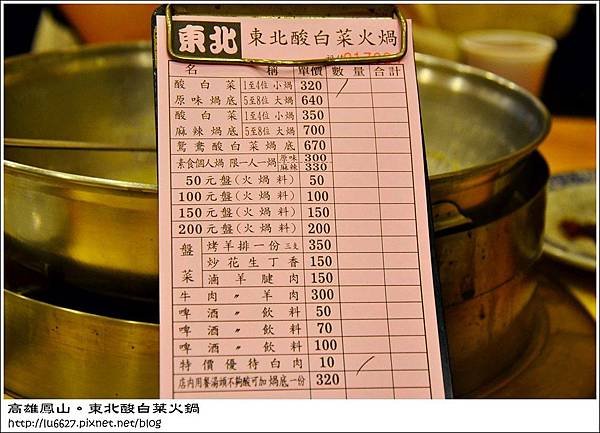 東北 東北酸白菜火鍋
名稱 單價 數量 合計
酸白菜 1至4位小鍋 320
原味鍋底 5至8位大鍋 640
酸白菜 1至4位小鍋 350
麻辣鍋底 5至8位大鍋 700
鴛鴦酸白菜鍋底 670
素食個人鍋 限一人一鍋 原味 300
麻辣 330
50元盤(火鍋料) 50
100元盤(火鍋料) 100
150元盤(火鍋料) 150
200元盤(火鍋料) 200
盤菜 烤羊排一份三支 350
炒花生丁香 150
滷羊腱肉 150
牛肉〃羊肉 300
啤酒〃飲料 50
啤酒〃飲料 70
啤酒〃飲料 100
特價優待白肉 10
店內用餐湯頭不夠酸可加鍋底一份 320
高雄鳳山。東北酸白菜火鍋
http://lu6627.pixnet.net/blog